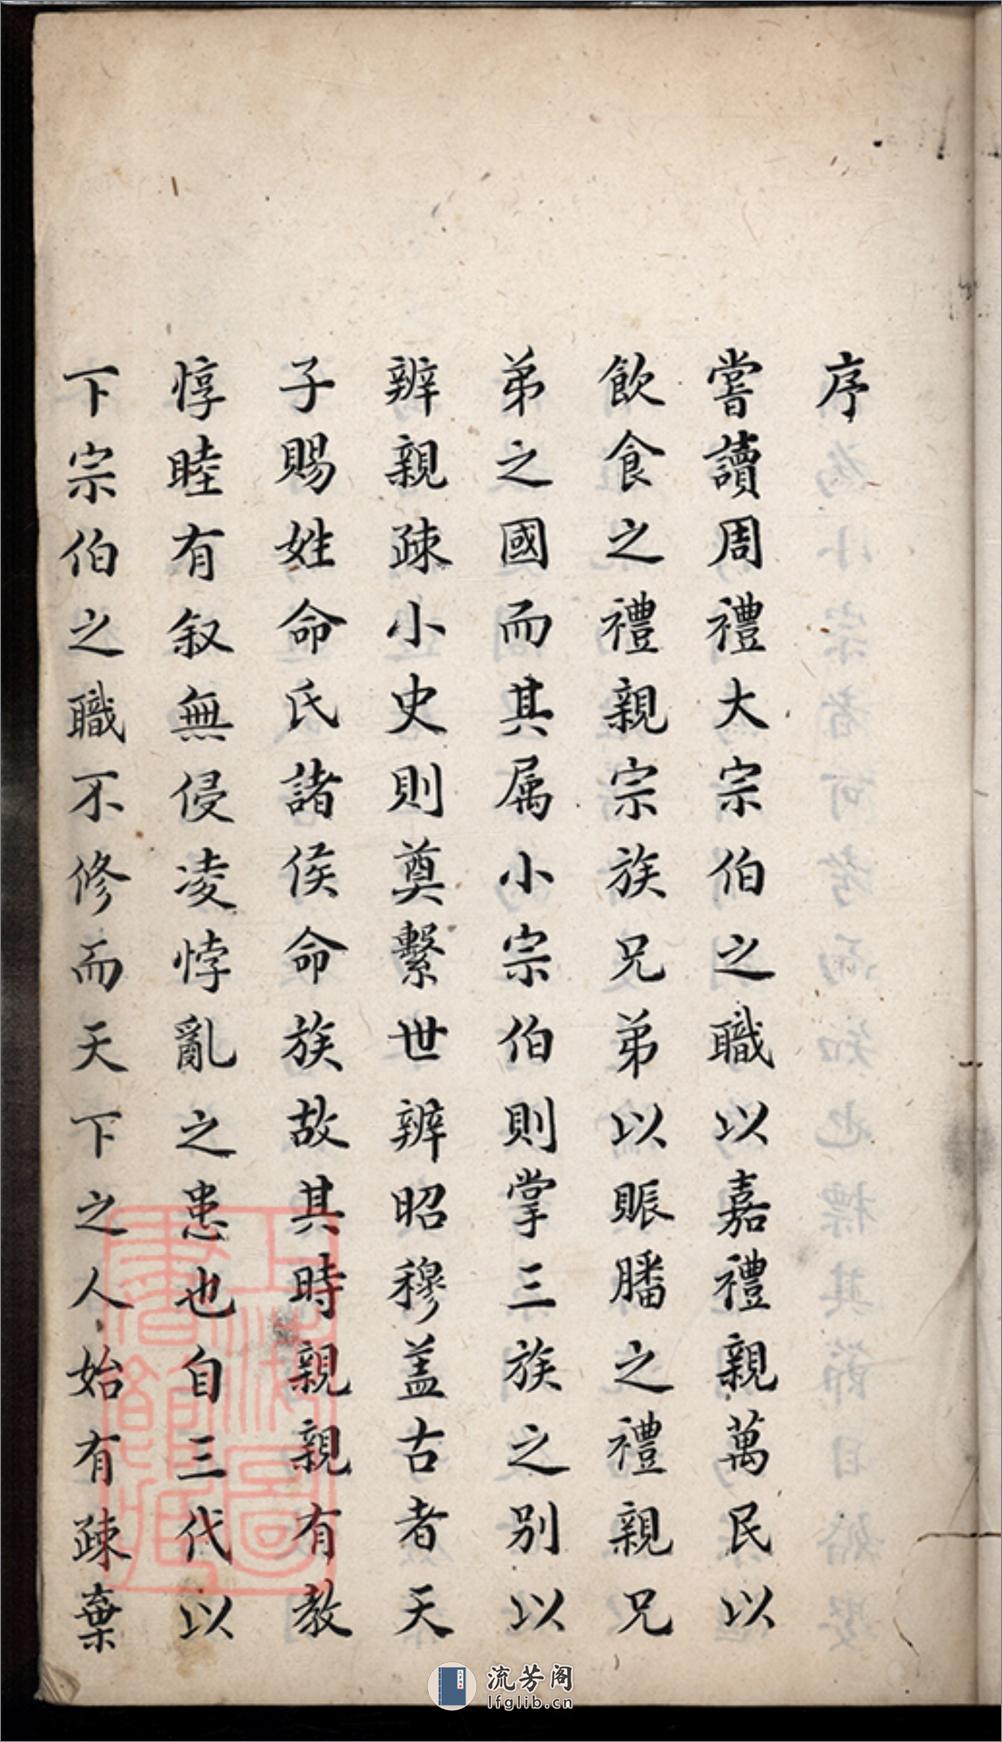 序
嘗讀周禮大宗伯之職以嘉禮親萬民以
飲食之禮親宗族兄弟以賑膰之禮親兄
弟之國而其属小宗伯則掌三族之別以
辨親疎小史則奠繫世辨昭穆盖古者天
子賜姓命氏諸侯命族故其時親親有教
惇睦有叙無侵凌悖亂之患也自三代以
下宗伯之職不修而天下之人始有疎棄
上海圖書館藏
流芳阁
lfglib.cn